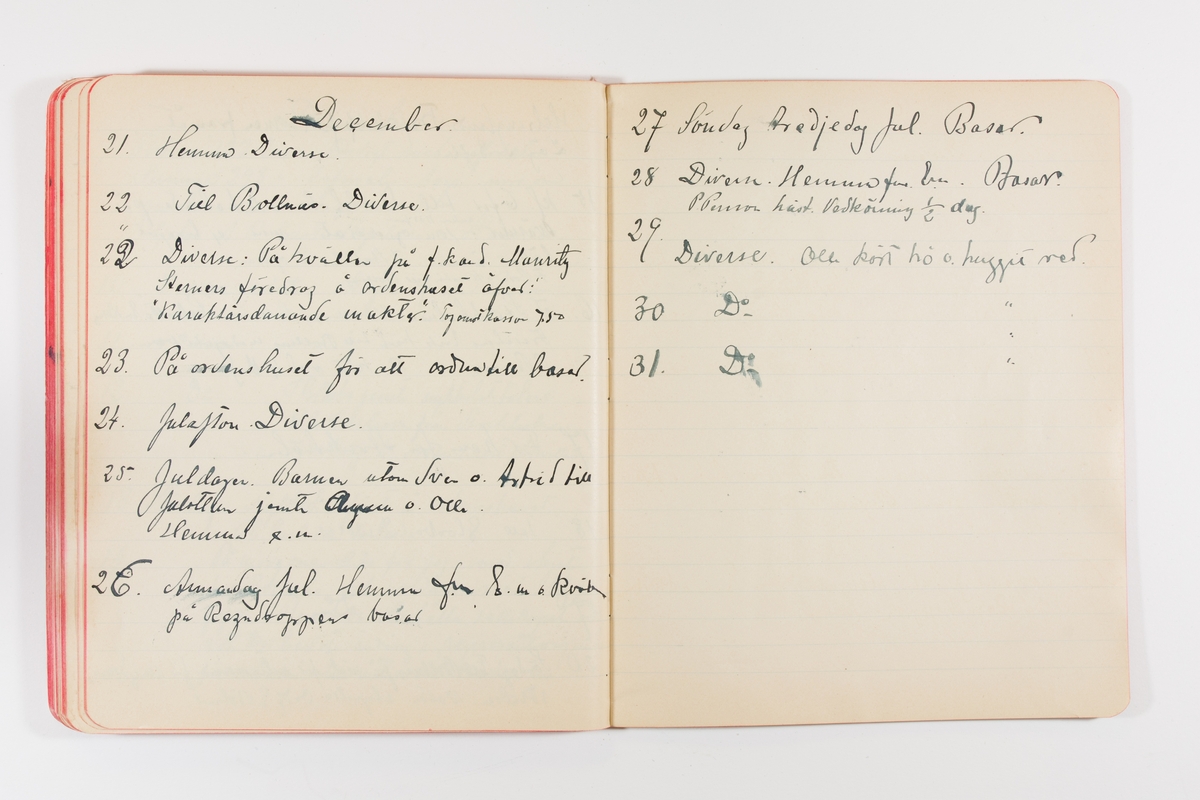 December.
21. Hemma. Diverse.
22 Till Bollnäs. Diverse.
"
22 Diverse: På kvällen på f. kand. Mauritz
Sterners föredrag å ordenshuset öfver:
"Karaktärsdanande makter". 7.50
23. På ordenshuset för att ordna till basar.
24. Julafton. Diverse.
25. Juldagen. Barnen utom Sven o. Astrid till
Julottan jemte o. Olle.
Hemma e.m.
26. Annandag Jul. Hemma fm E.m o. kväll
på Regndroppens basar
27 Söndag tredjedag Jul. Basar.
28 Diverse. Hemma fm. Em. Basar.
P Persson häst. Vedkörning ½ dag.
29. Diverse. Olle kört hö o. huggit ved.
30 Do "
"
31. Do "